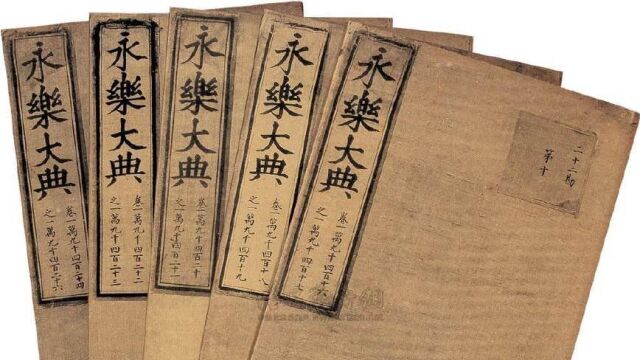 永樂大典
卷一萬九千四百二十四
之一萬九千四百二十六
永樂大典
卷一萬九千四百二十二
之一萬九千四百二十三
永樂大典
卷一萬九千四百二十
之一萬九千四百二十一
永樂大典
卷一萬九千四百十八
之一萬九千四百十九
永樂大典
卷一萬九千四百十六
之一萬九千四百十七
二十二
第十